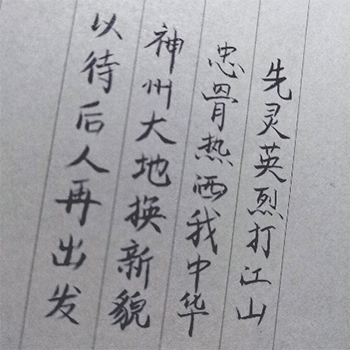 先灵英烈打江山
忠骨热洒我中华
神州大地换新貌
以待后人再出发